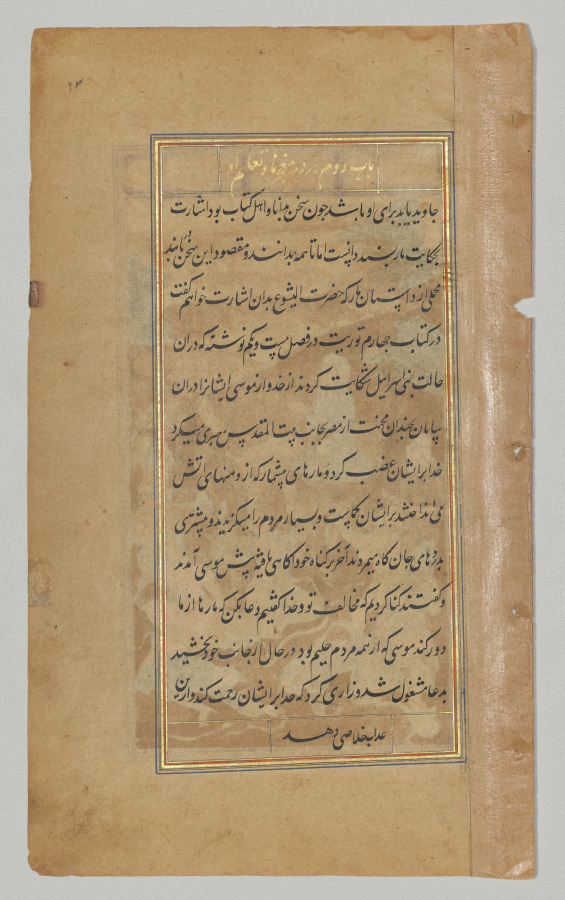 ۶۳
باب دوم در معجزها و تعلیم او
جاوید یابد برای او باشد چون سخن با دانا و اهل کتاب بود اشارت
بحکایت مار بسنده دانست اما تا همه بدانند و مقصود این سخن را یابند
مجملی از داستان مار که حضرت ایشوع بدان اشارت خواهم گفت
در کتاب چهارم توریت در فصل بیست و یکم نوشته که دران
حالت بنی اسرائیل شکایت کردند از خدا و از موسی ایشانرا دران
بیابان بچندان محنت از مصر بجانب بیت المقدس رهبری میکرد
خدا برایشان غضب کرد و مارهای بیشمار که از دمنهای اتش
می انداختند برایشان گماشت و بسیار مردم را میگزیدند و بیشتری
بدردهای جان کاه میمردند آخر بر گناه خود آگاهی یافته پیش موسی آمدند
و گفتند گناه کردیم که مخالف تو و خدا گفتیم دعا بکن که مارها از ما
دور کند موسی که از همه مردم حلیم بود در حال از جانب خود بخشید
بدعا مشغول شد و زاری کرد که خدا برایشان رحمت کند و ازین
عذاب خلاصی دهد